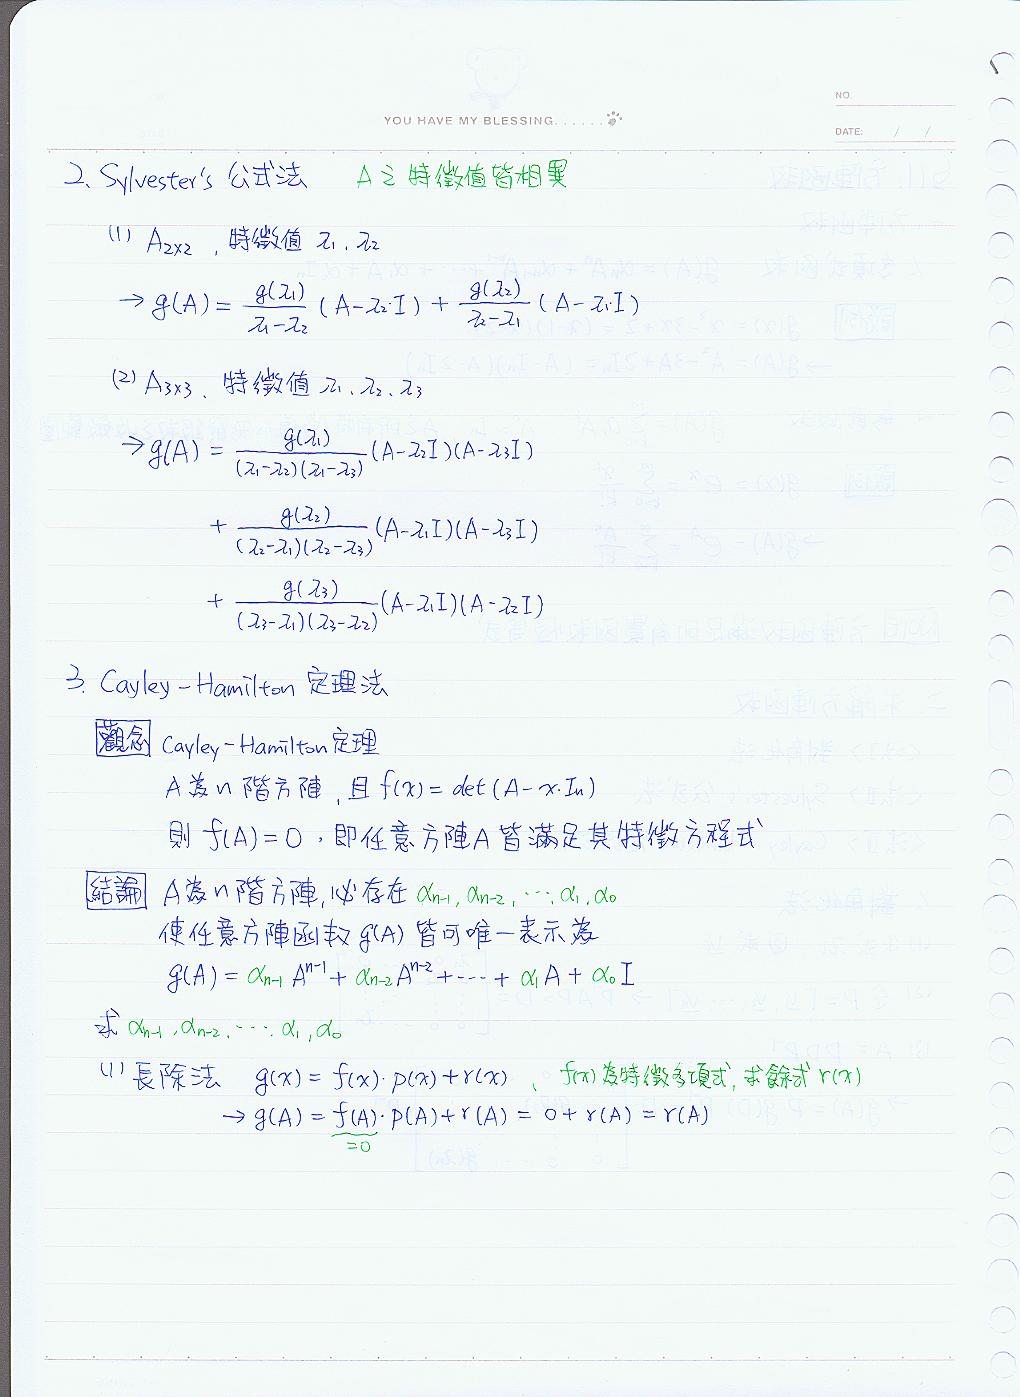 NO.
YOU HAVE MY BLESSING. . . . . .
DATE: / /
2. Sylvester's 公式法 A之特徵值皆相異
(1) A₂ₓ₂ , 特徵值 λ₁、λ₂
→ g(A) = g(λ₁)/(λ₁-λ₂) (A-λ₂·I) + g(λ₂)/(λ₂-λ₁) (A-λ₁·I)
(2) A₃ₓ₃、特徵值 λ₁、λ₂、λ₃
→ g(A) = g(λ₁)/((λ₁-λ₂)(λ₁-λ₃)) (A-λ₂I)(A-λ₃I)
+ g(λ₂)/((λ₂-λ₁)(λ₂-λ₃)) (A-λ₁I)(A-λ₃I)
+ g(λ₃)/((λ₃-λ₁)(λ₃-λ₂)) (A-λ₁I)(A-λ₂I)
3. Cayley-Hamilton 定理法
觀念 Cayley-Hamilton定理
A為n階方陣, 且 f(x) = det(A-x·Iₙ)
則 f(A)=0,即任意方陣A皆滿足其特徵方程式
結論 A為n階方陣,必存在 αₙ₋₁, αₙ₋₂, ⋯, α₁, α₀
使任意方陣函數 g(A) 皆可唯一表示為
g(A) = αₙ₋₁Aⁿ⁻¹ + αₙ₋₂Aⁿ⁻² + ⋯ + α₁A + α₀I
求 αₙ₋₁, αₙ₋₂, ⋯, α₁, α₀
(1) 長除法 g(x) = f(x)·p(x)+r(x) , f(x)為特徵多項式, 求餘式 r(x)
→ g(A) = f(A)·p(A)+r(A) = 0+r(A) = r(A)
=0